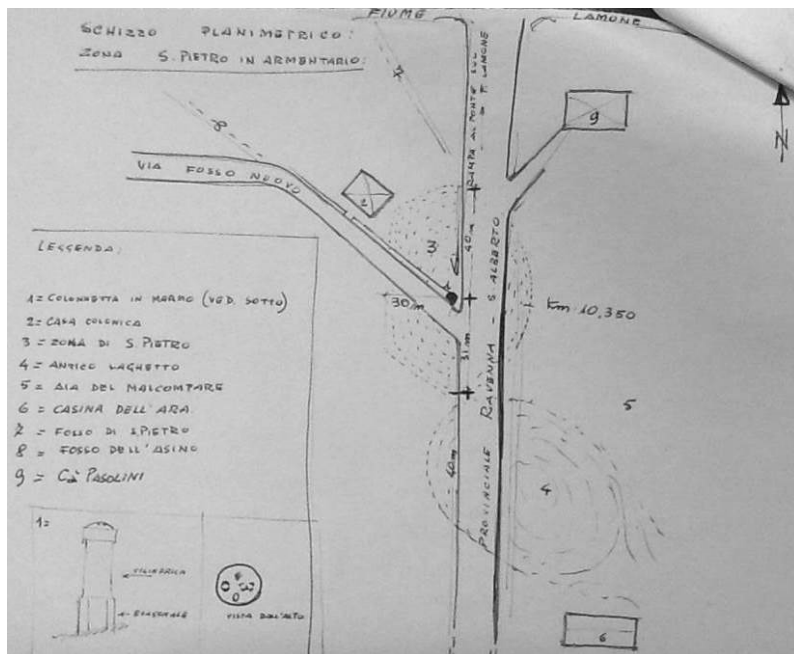 SCHIZZO PLANIMETRICO:
ZONA S. PIETRO IN ARMENTARIO:
FIUME LAMONE
RAMPA AL PONTE SUL F. LAMONE
N
7
8
9
VIA FOSSO NUOVO
2
3
40 m
30 m
31 m
Km 10,350
PROVINCIALE RAVENNA - S. ALBERTO
5
40 m
4
6
LEGGENDA:
1 = COLONNETTA IN MARMO (VED. SOTTO)
2 = CASA COLONICA
3 = ZONA DI S. PIETRO
4 = ANTICO LAGHETTO
5 = AIA DEL MALCOMPARE
6 = CASINA DELL'ARA
7 = FOSSO DI S. PIETRO
8 = FOSSO DELL'ASINO
9 = Cà PASOLINI
1=
CILINDRICA
ESAGONALE
VISTA DALL'ALTO